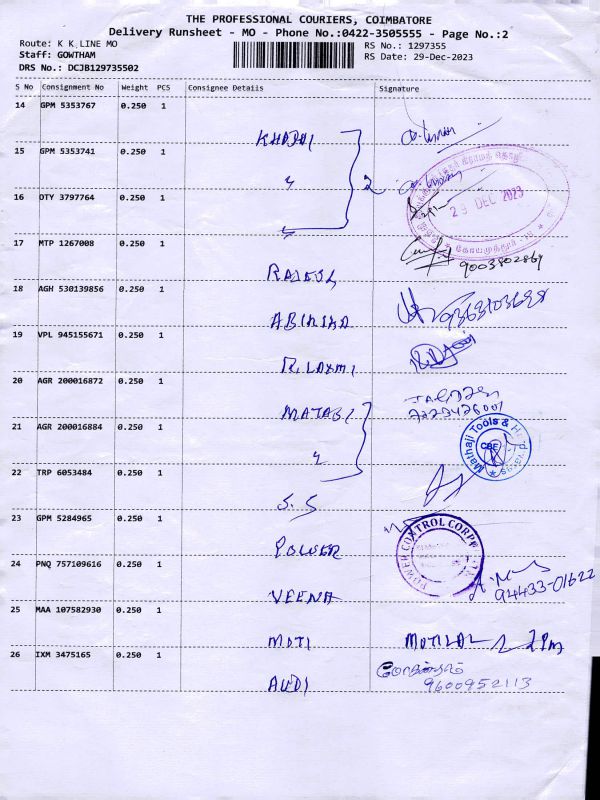 THE PROFESSIONAL COURIERS, COIMBATORE
Delivery Runsheet - MO - Phone No.:0422-3505555 - Page No.:2
Route: K K LINE MO
Staff: GOWTHAM
DRS No.: DCJB129735502
RS No.: 1297355
RS Date: 29-Dec-2023
S No Consignment No Weight PCS Consignee Details Signature
14 GPM 5353767 0.250 1
KHADHI
15 GPM 5353741 0.250 1
2
16 DTY 3797764 0.250 1
29 DEC 2023
17 MTP 1267008 0.250 1
RAJESH 9003802864
18 AGH 530139856 0.250 1
ABINIKA 9363103698
19 VPL 945155671 0.250 1
R. LAXMI
20 AGR 200016872 0.250 1
MATAGI
21 AGR 200016884 0.250 1
Mathaji Tools & Hardwares
CBE
22 TRP 6053484 0.250 1
S. S
23 GPM 5284965 0.250 1
POWER POWER CONTROL CORPN
24 PNQ 757109616 0.250 1
VEENA 94433-01622
25 MAA 107582930 0.250 1
MOTI MOTILAL 2 PM
26 IXM 3475165 0.250 1
AUDI 9600952113